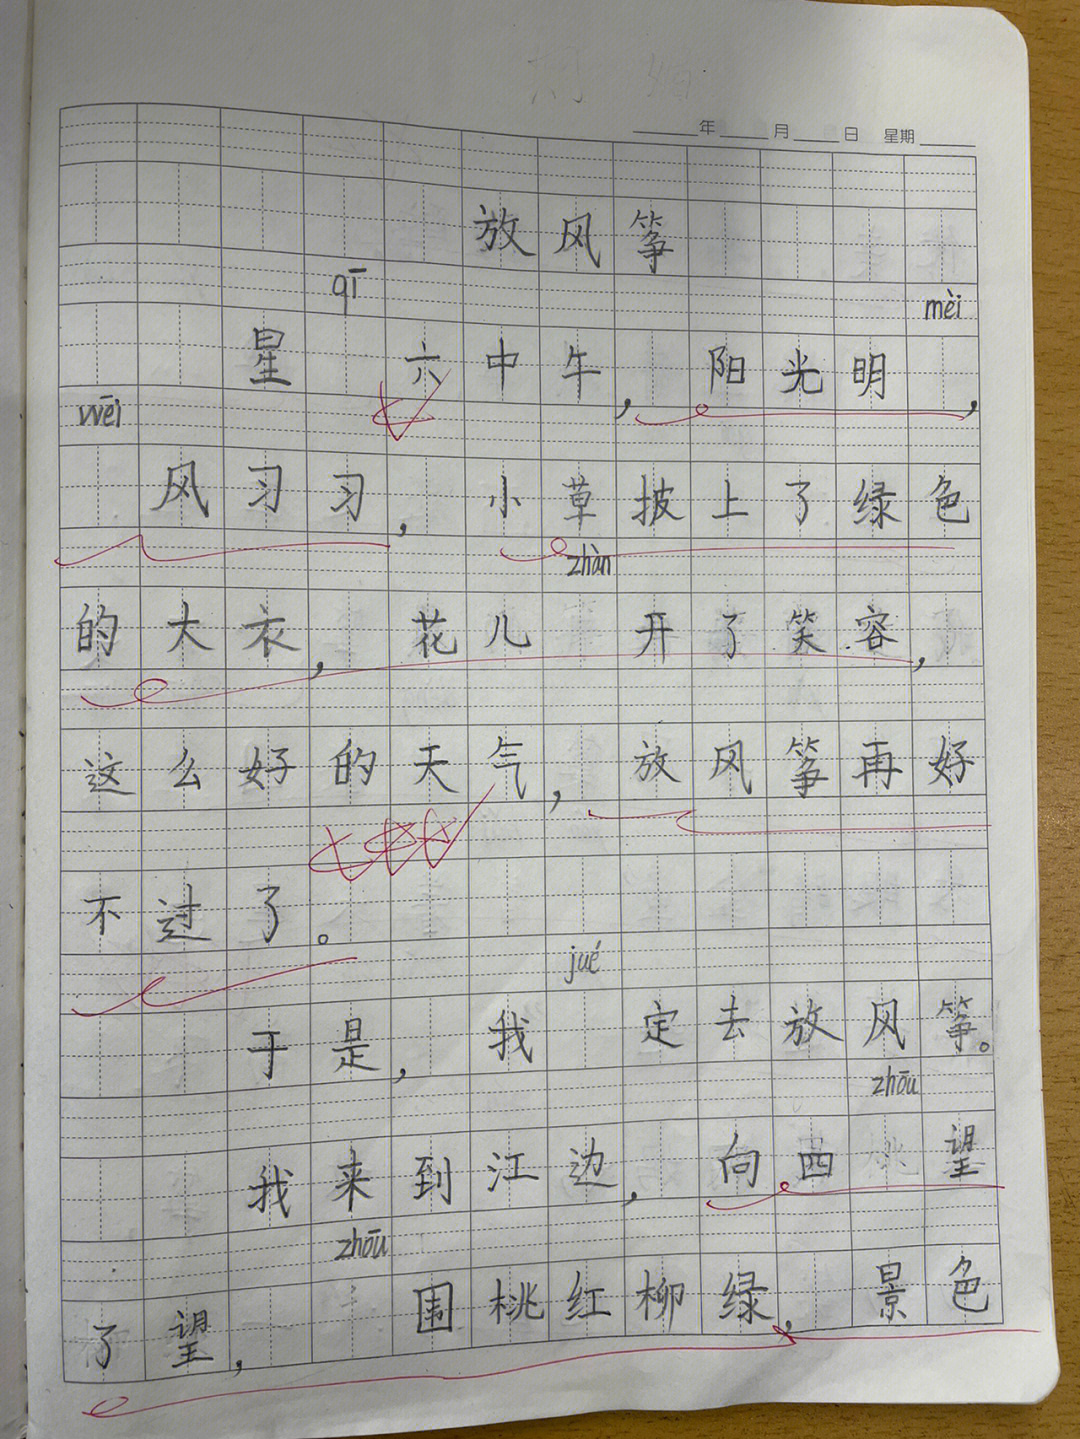 年 月 日 星期
放风筝
qī mèi
星 六中午，阳光明 ，
wēi
风习习，小草披上了绿色
zhàn
的大衣，花儿 开了笑容，
这么好的天气，放风筝再好
不过了。
jué
于是，我 定去放风筝。
zhōu
我来到江边，向四 望
zhōu
了望， 围桃红柳绿，景色